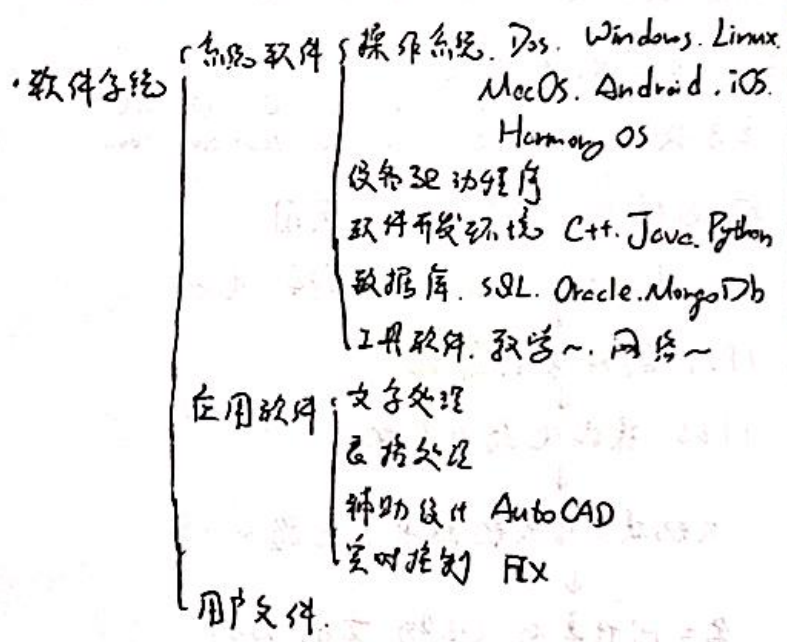 ·软件系统
系统软件
操作系统. Dos. Windows. Linux.
MacOS. Android. iOS.
Harmony OS
设备驱动程序
软件开发环境 C++. Java. Python
数据库. SQL. Oracle. MongoDb
工具软件. 教学~. 网络~
应用软件
文字处理
表格处理
辅助设计 AutoCAD
实时控制 FIX
用户文件.